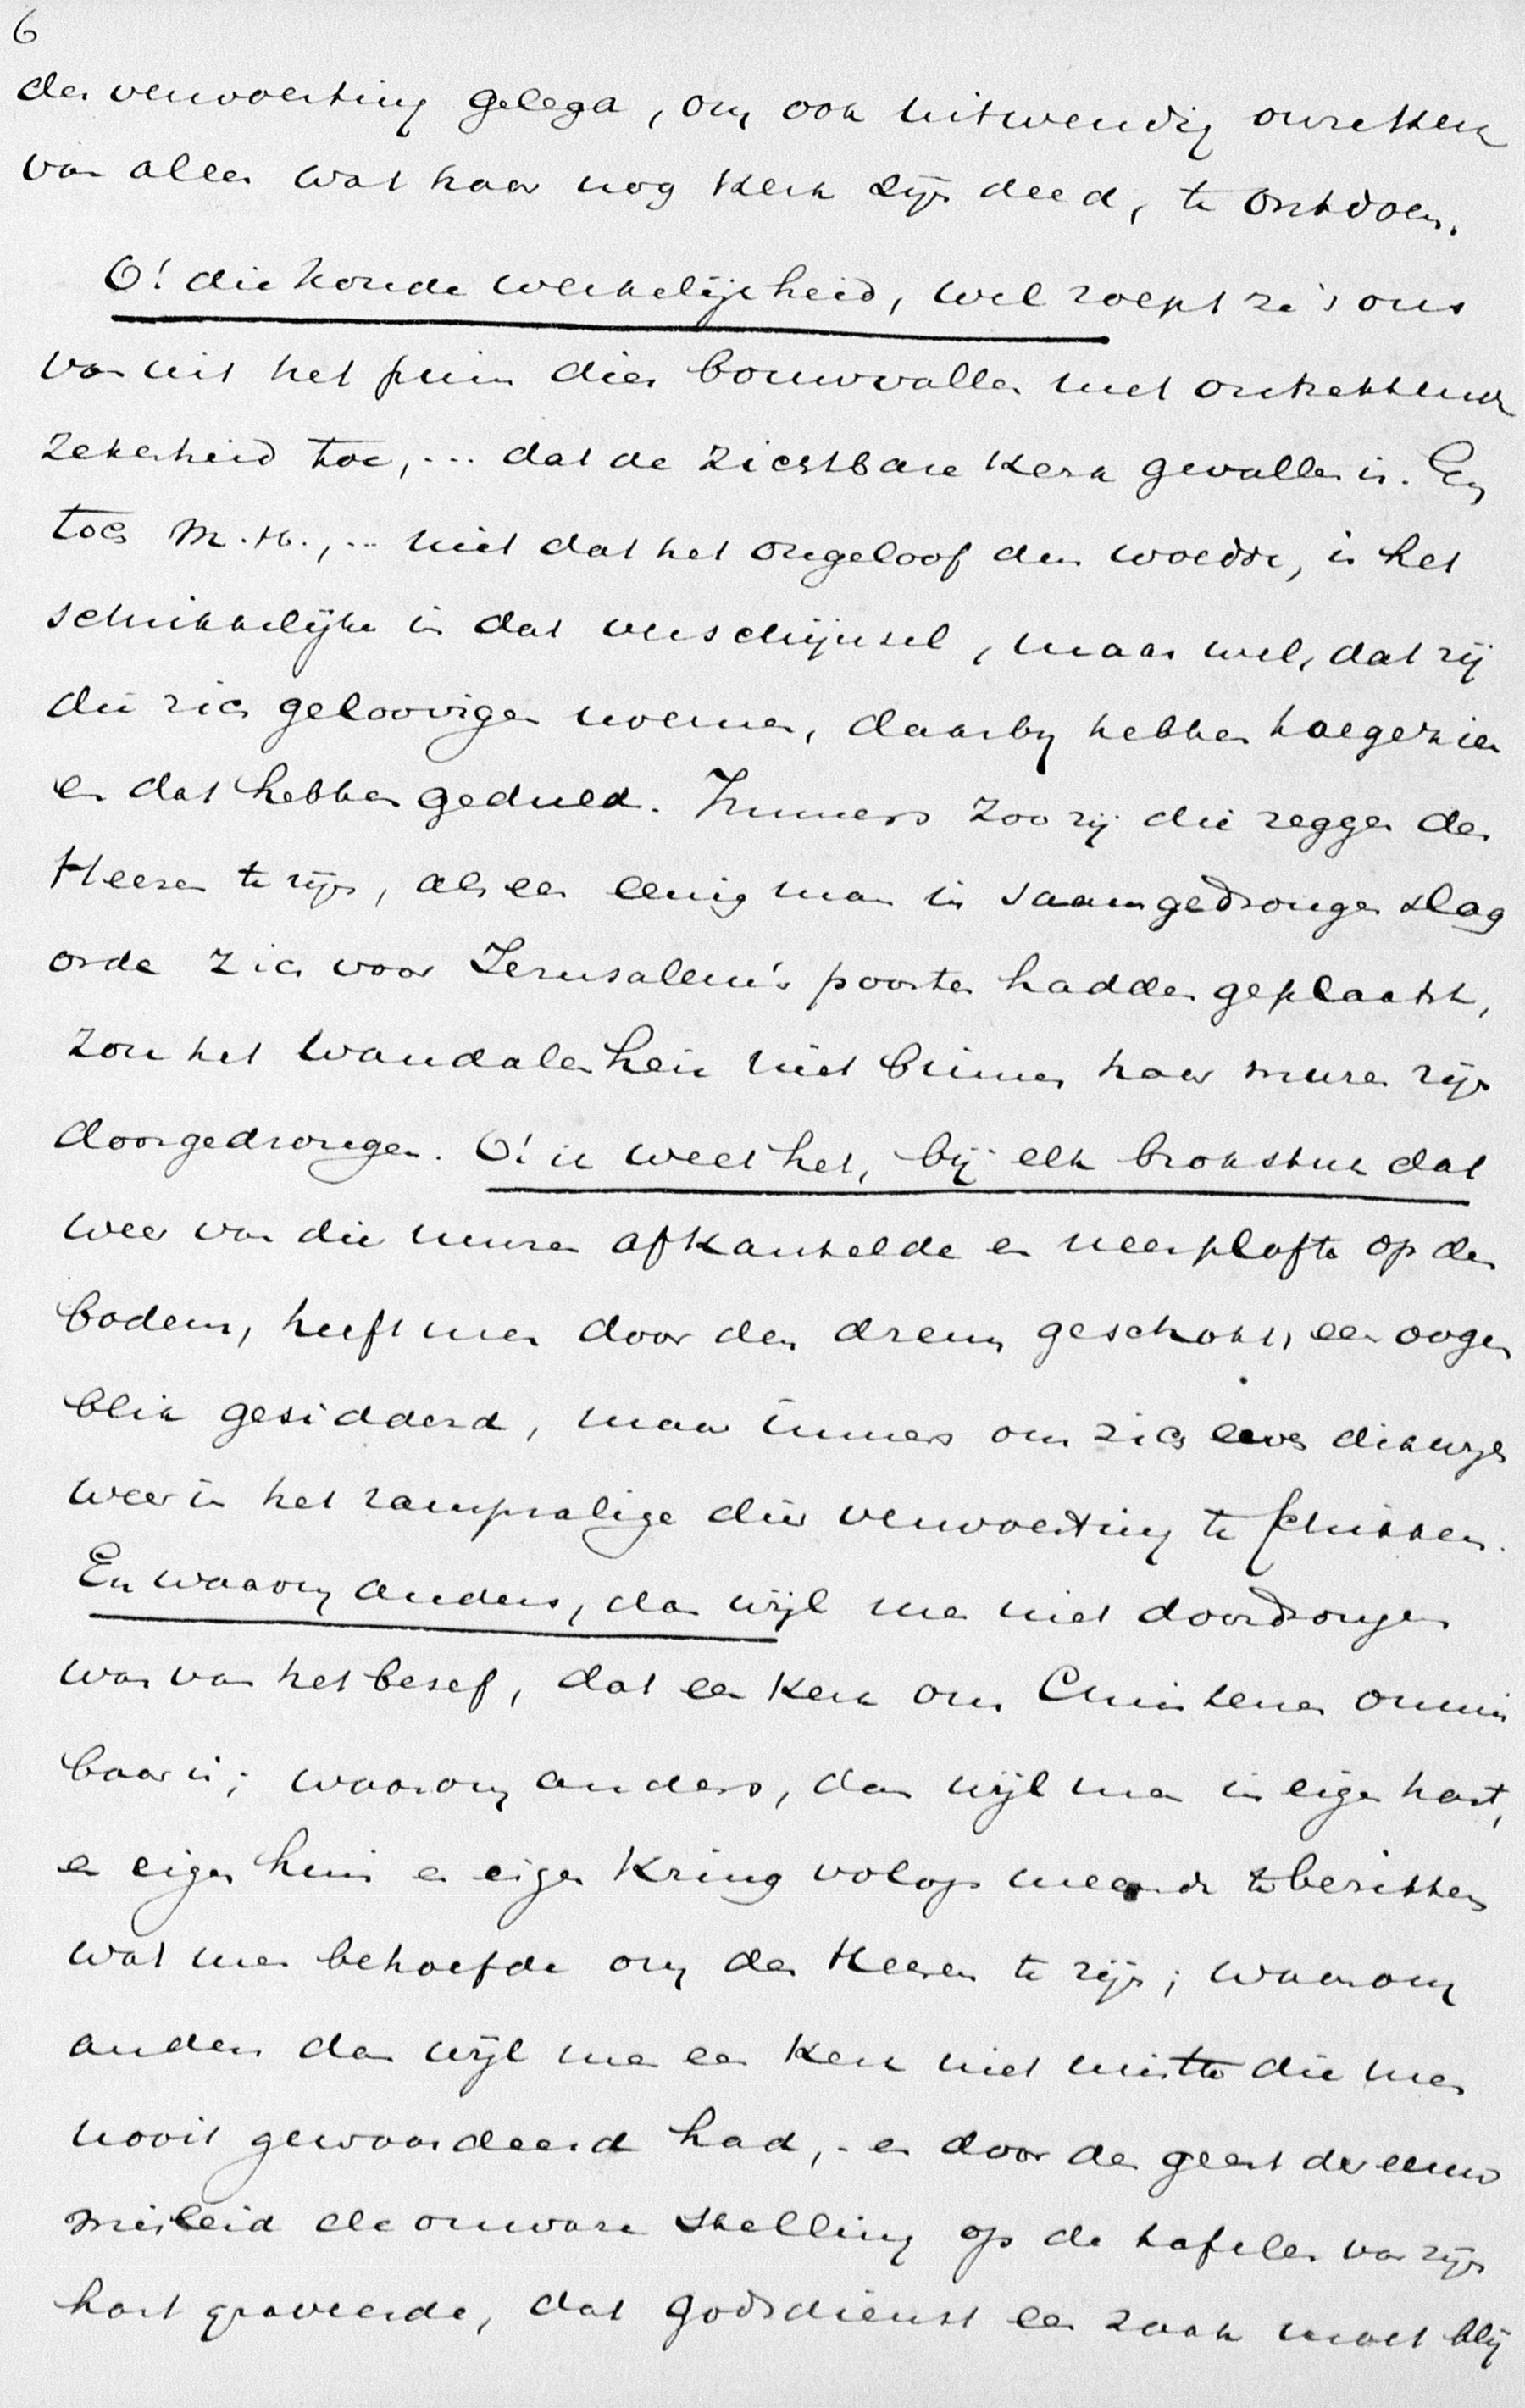 6
der verwoesting gelegd, om ook uitwendig onze Kerk
van alles wat haar nog Kerk zijn deed, te ontdoen.
O! die koude werkelijkheid, wel roept ze 't ons
van uit het puin dier bouwvallen met ontzettende
zekerheid toe, ... dat de zichtbare Kerk gevallen is. En
toch M.H., ... niet dat het ongeloof dus woedde, is het
schrikkelijke in dat verschijnsel, maar wel, dat zij
die zich geloovigen noemen, daarbij hebben toegezien
en dat hebben geduld. Immers zoo zij die zeggen des
Heeren te zijn, als een eenig man in saamgedrongen slag
orde zich voor Jerusalem's poorten hadden geplaatst,
zou het Wandalenheir niet binnen haar muren zijn
doorgedrongen. O! ik weet het, bij elk brokstuk dat
weer van die muren afkantelde en neerplofte op den
bodem, heeft men door den dreun geschokt, een oogen
blik gesidderd, maar immers om zich even dikwijls
weer in het rampzalige dier verwoesting te schikken.
En waarom anders, dan wijl men niet doordrongen
was van het besef, dat een Kerk ons Christenen onmis
baar is; waarom anders, dan wijl men in eigen hart,
en eigen huis en eigen Kring volop meende te bezitten
wat men behoefde om des Heeren te zijn; waarom
anders dan wijl men een Kerk niet miste die men
nooit gewaardeerd had, - en door den geest der eeuw
misleid de onware stelling op de tafelen van zijn
hart graveerde, dat godsdienst een zaak moet blij